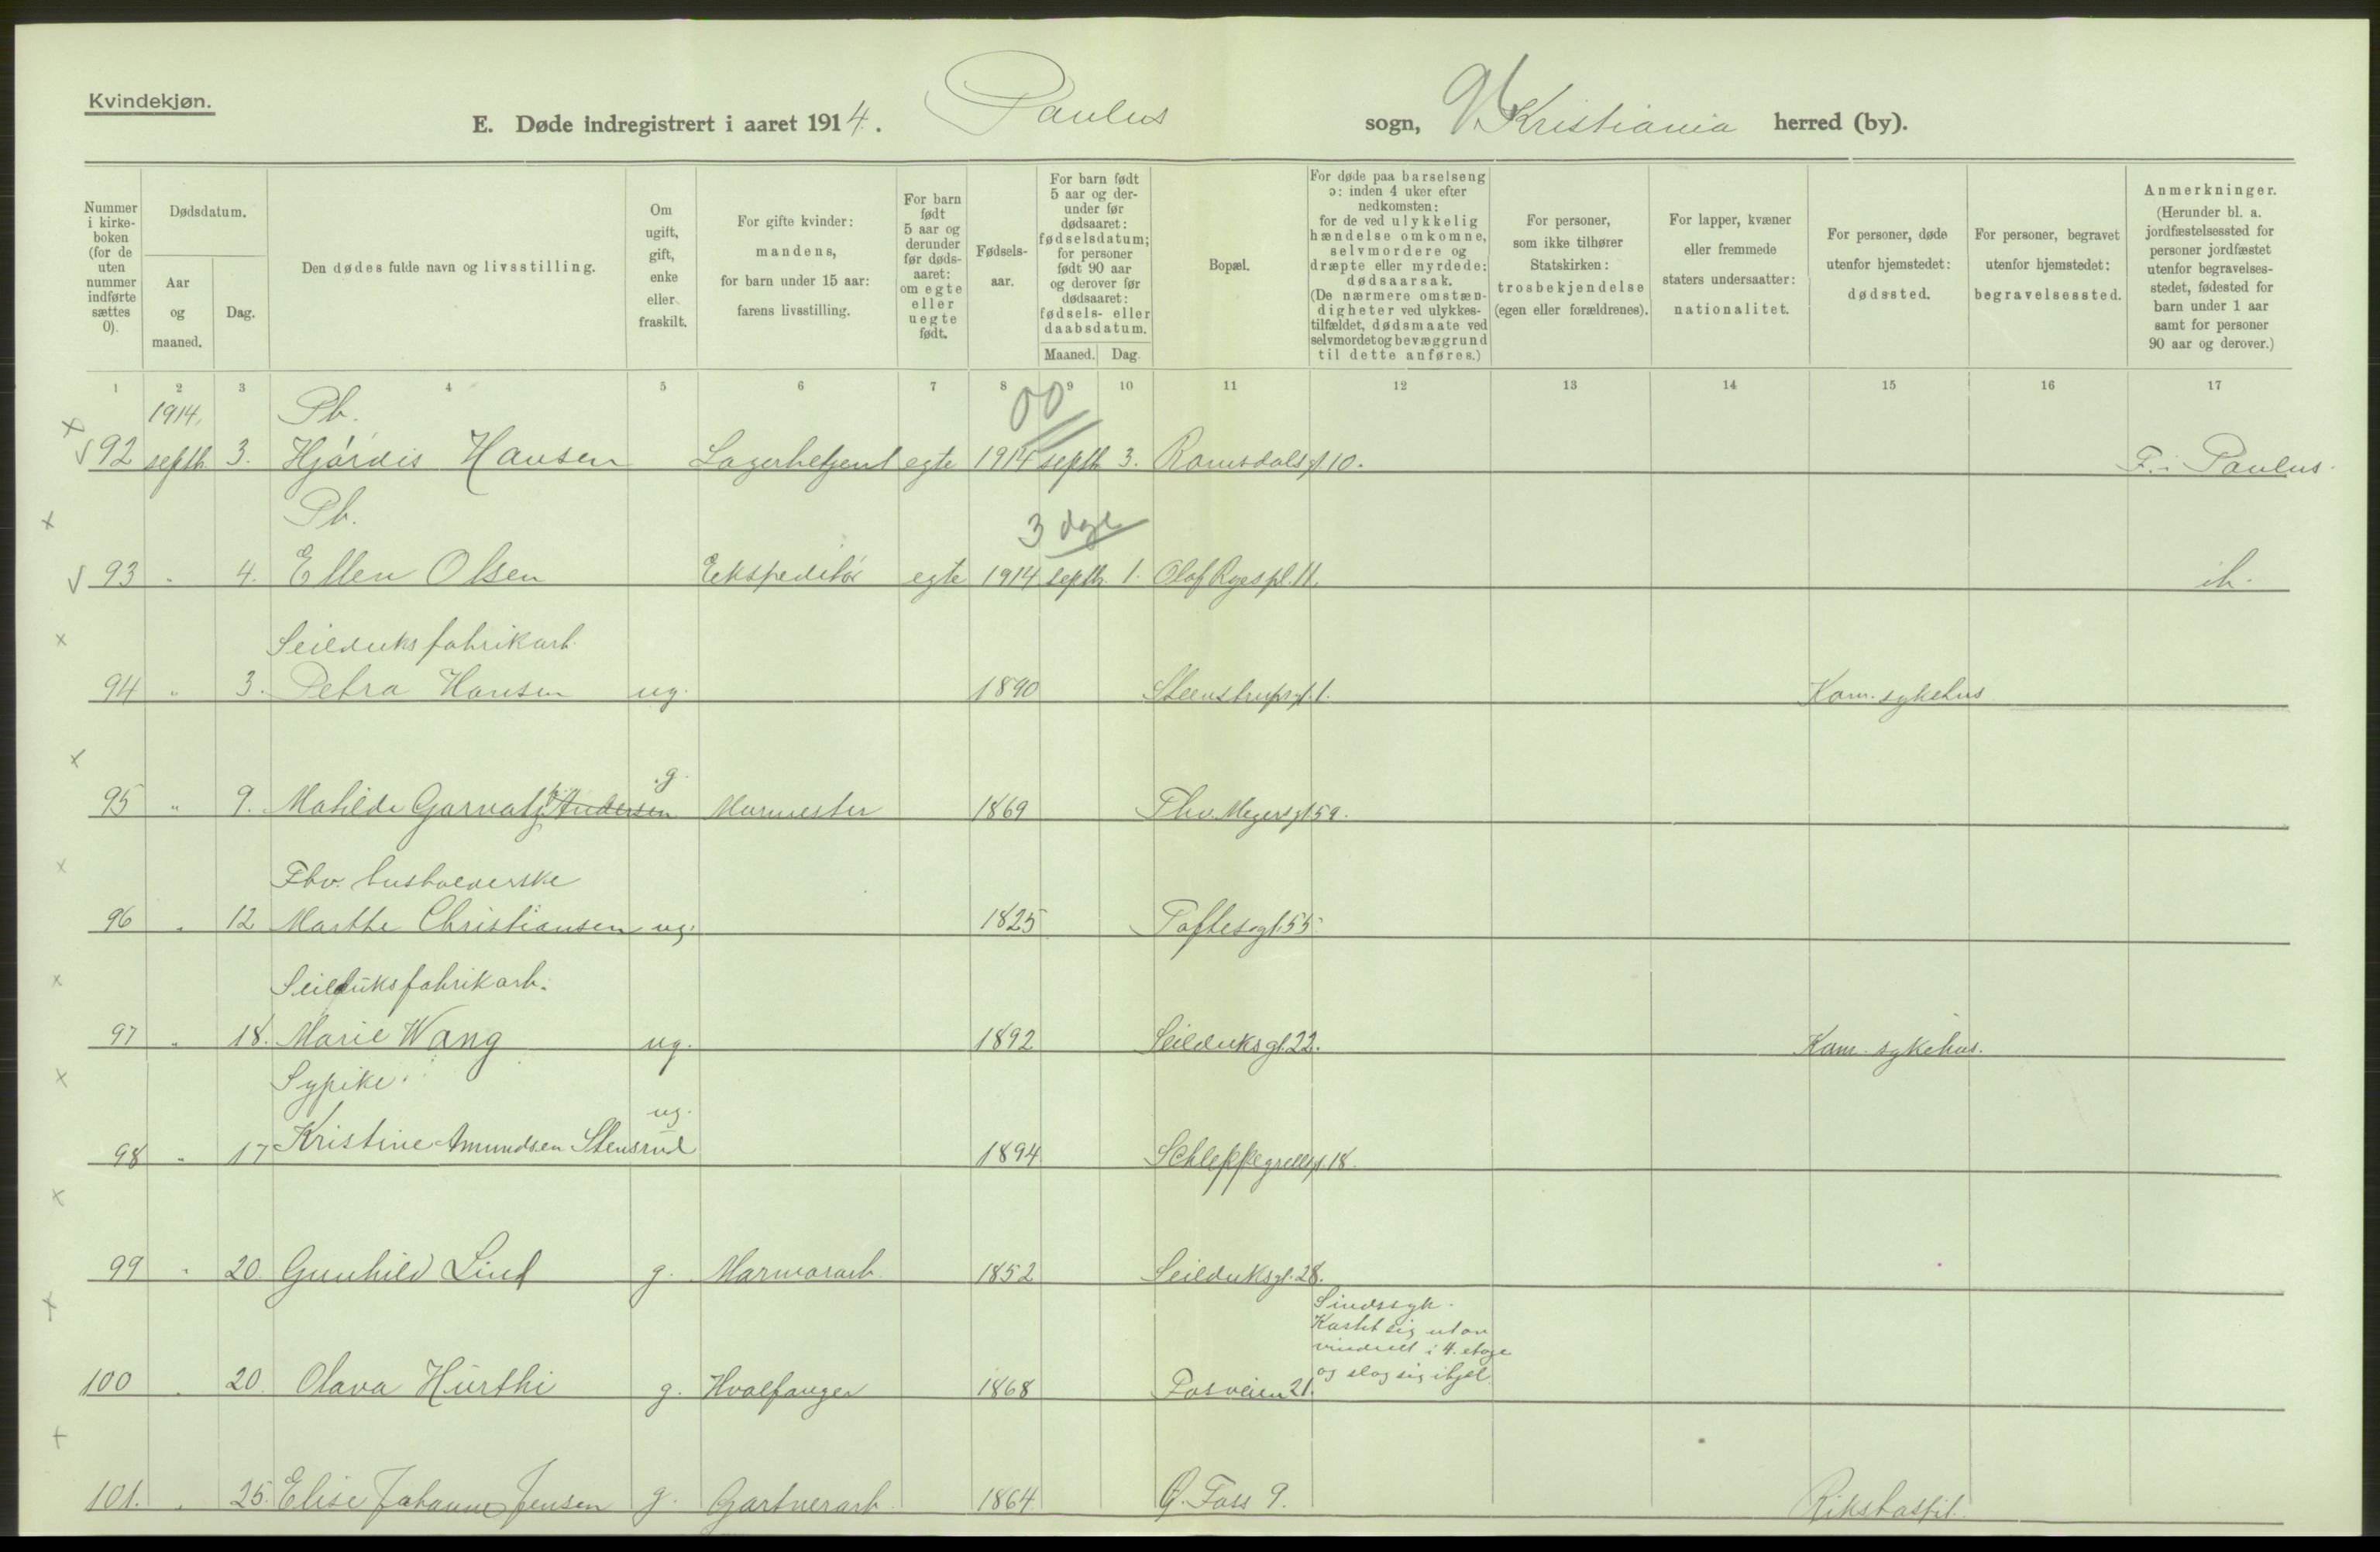 Kvindekjøn.
E. Døde indregistrert i aaret 1914. Paulus sogn, Kristiania herred (by).
Nummer i kirke-boken (for de uten nummer indførte sættes 0).
Dødsdatum.
Aar og maaned.
Dag.
Den dødes fulde navn og livsstilling.
Om ugift, gift, enke eller fraskilt.
For gifte kvinder: mandens, for barn under 15 aar: farens livsstilling.
For barn født 5 aar og derunder før døds-aaret: om egte eller uegte født.
Fødsels-aar.
For barn født 5 aar og der-under før dødsaaret: fødselsdatum; for personer født 90 aar og derover før dødsaaret: fødsels- eller daabsdatum.
Maaned. Dag.
Bopæl.
For døde paa barselseng ɔ: inden 4 uker efter nedkomsten: for de ved ulykkelig hændelse omkomne, selvmordere og dræpte eller myrdede: dødsaarsak. (De nærmere omstæn-digheter ved ulykkes-tilfældet, dødsmaate ved selvmordet og bevæggrund til dette anføres.)
For personer, som ikke tilhører Statskirken: trosbekjendelse (egen eller forældrenes).
For lapper, kvæner eller fremmede staters undersaatter: nationalitet.
For personer, døde utenfor hjemstedet: dødssted.
For personer, begravet utenfor hjemstedet: begravelsessted.
Anmerkninger. (Herunder bl. a. jordfæstelsessted for personer jordfæstet utenfor begravelses-stedet, fødested for barn under 1 aar samt for personer 90 aar og derover.)
1 2 3 4 5 6 7 8 9 10 11 12 13 14 15 16 17
1914. Pb. 00
92 septb. 3. Hjørdis Hansen Lagerbetjent egte 1914 septb. 3. Romsdalsgt 10. F. i Paulus.
Pb. 3 dage
93 " 4. Ellen Olsen Eekspeditør egte 1914 septb. 1. Olaf Ryespl. 11. ib.
Seilduksfabrikarb.
94 " 3. Petra Hansen ug. 1890 Steenstrupsgt. 1. Kom. sykehus
g.
95 " 9. Matilde Garvatz Andersen Murmester 1869 Thv. Meyersgt 59.
Fhv. husholderske
96 " 12 Marthe Christiansen ug. 1825 Toftesgt. 55.
Seilduksfabrikarb.
97 " 18. Marie Wang ug. 1892 Seilduksgt. 22. Kom. sykehus.
Sypike.
ug.
98 " 17 Kristine Amundsen Stensrud 1894 Schleppegrellsgt. 18.
99 " 20. Gunhild Lind g. Marmorarb. 1852 Seilduksgt. 28.
Sindssyk.
Kastet sig ut av
vinduet i 4. etage
og slog sig ihjel.
100 " 20. Olava Hurthi g. Hvalfanger 1868 Fosveien 21.
101. " 25. Elise Johanne Jensen g. Gartnerarb. 1864 Ø. Foss 9. Rikshospit.